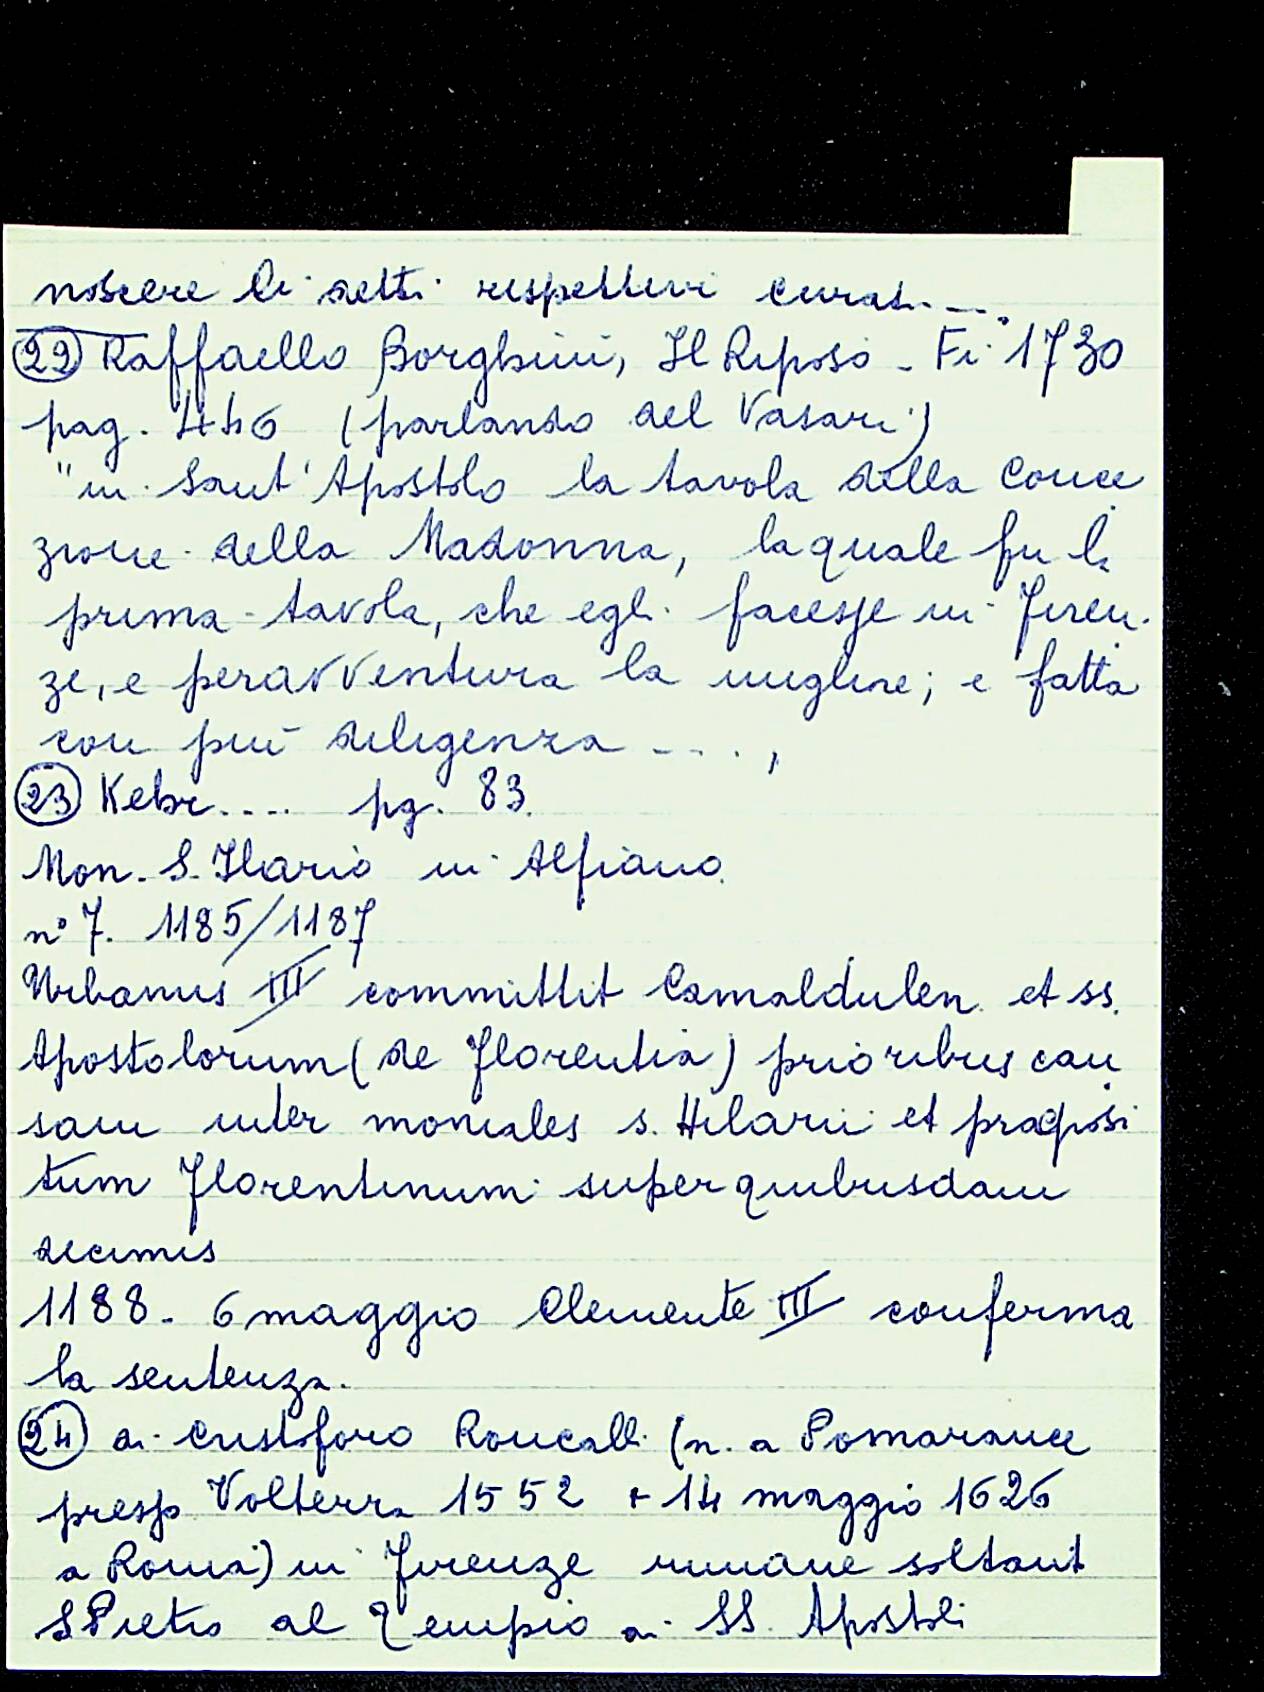 noscere li detti respettivi curati....
22 Raffaello Borghini, Il Riposo - Fi. 1730
pag. 446 (parlando del Vasari)
"in Sant'Apostolo la tavola della Conce
zione della Madonna, laquale fu la
prima tavola, che egli facesse in Firen-
ze, e peravventura la migliore; e fatta
con più diligenza ....,
23 Kehr.... pg. 83.
Mon. S. Ilario in Alfiano.
n° 7. 1185/1187
Urbanus III committit Camaldulen. et ss.
Apostolorum (de Florentia) prioribus cau
sam inter moniales s. Hilarii et praeposi
tum Florentinum super quibusdam
decimis
1188 - 6 maggio Clemente III conferma
la sentenza.
24 di Cristoforo Roncalli (n. a Pomarance
presso Volterra 1552 + 14 maggio 1626
a Roma) in Firenze rimane soltant
S. Pietro al Tempio ai SS. Apostoli